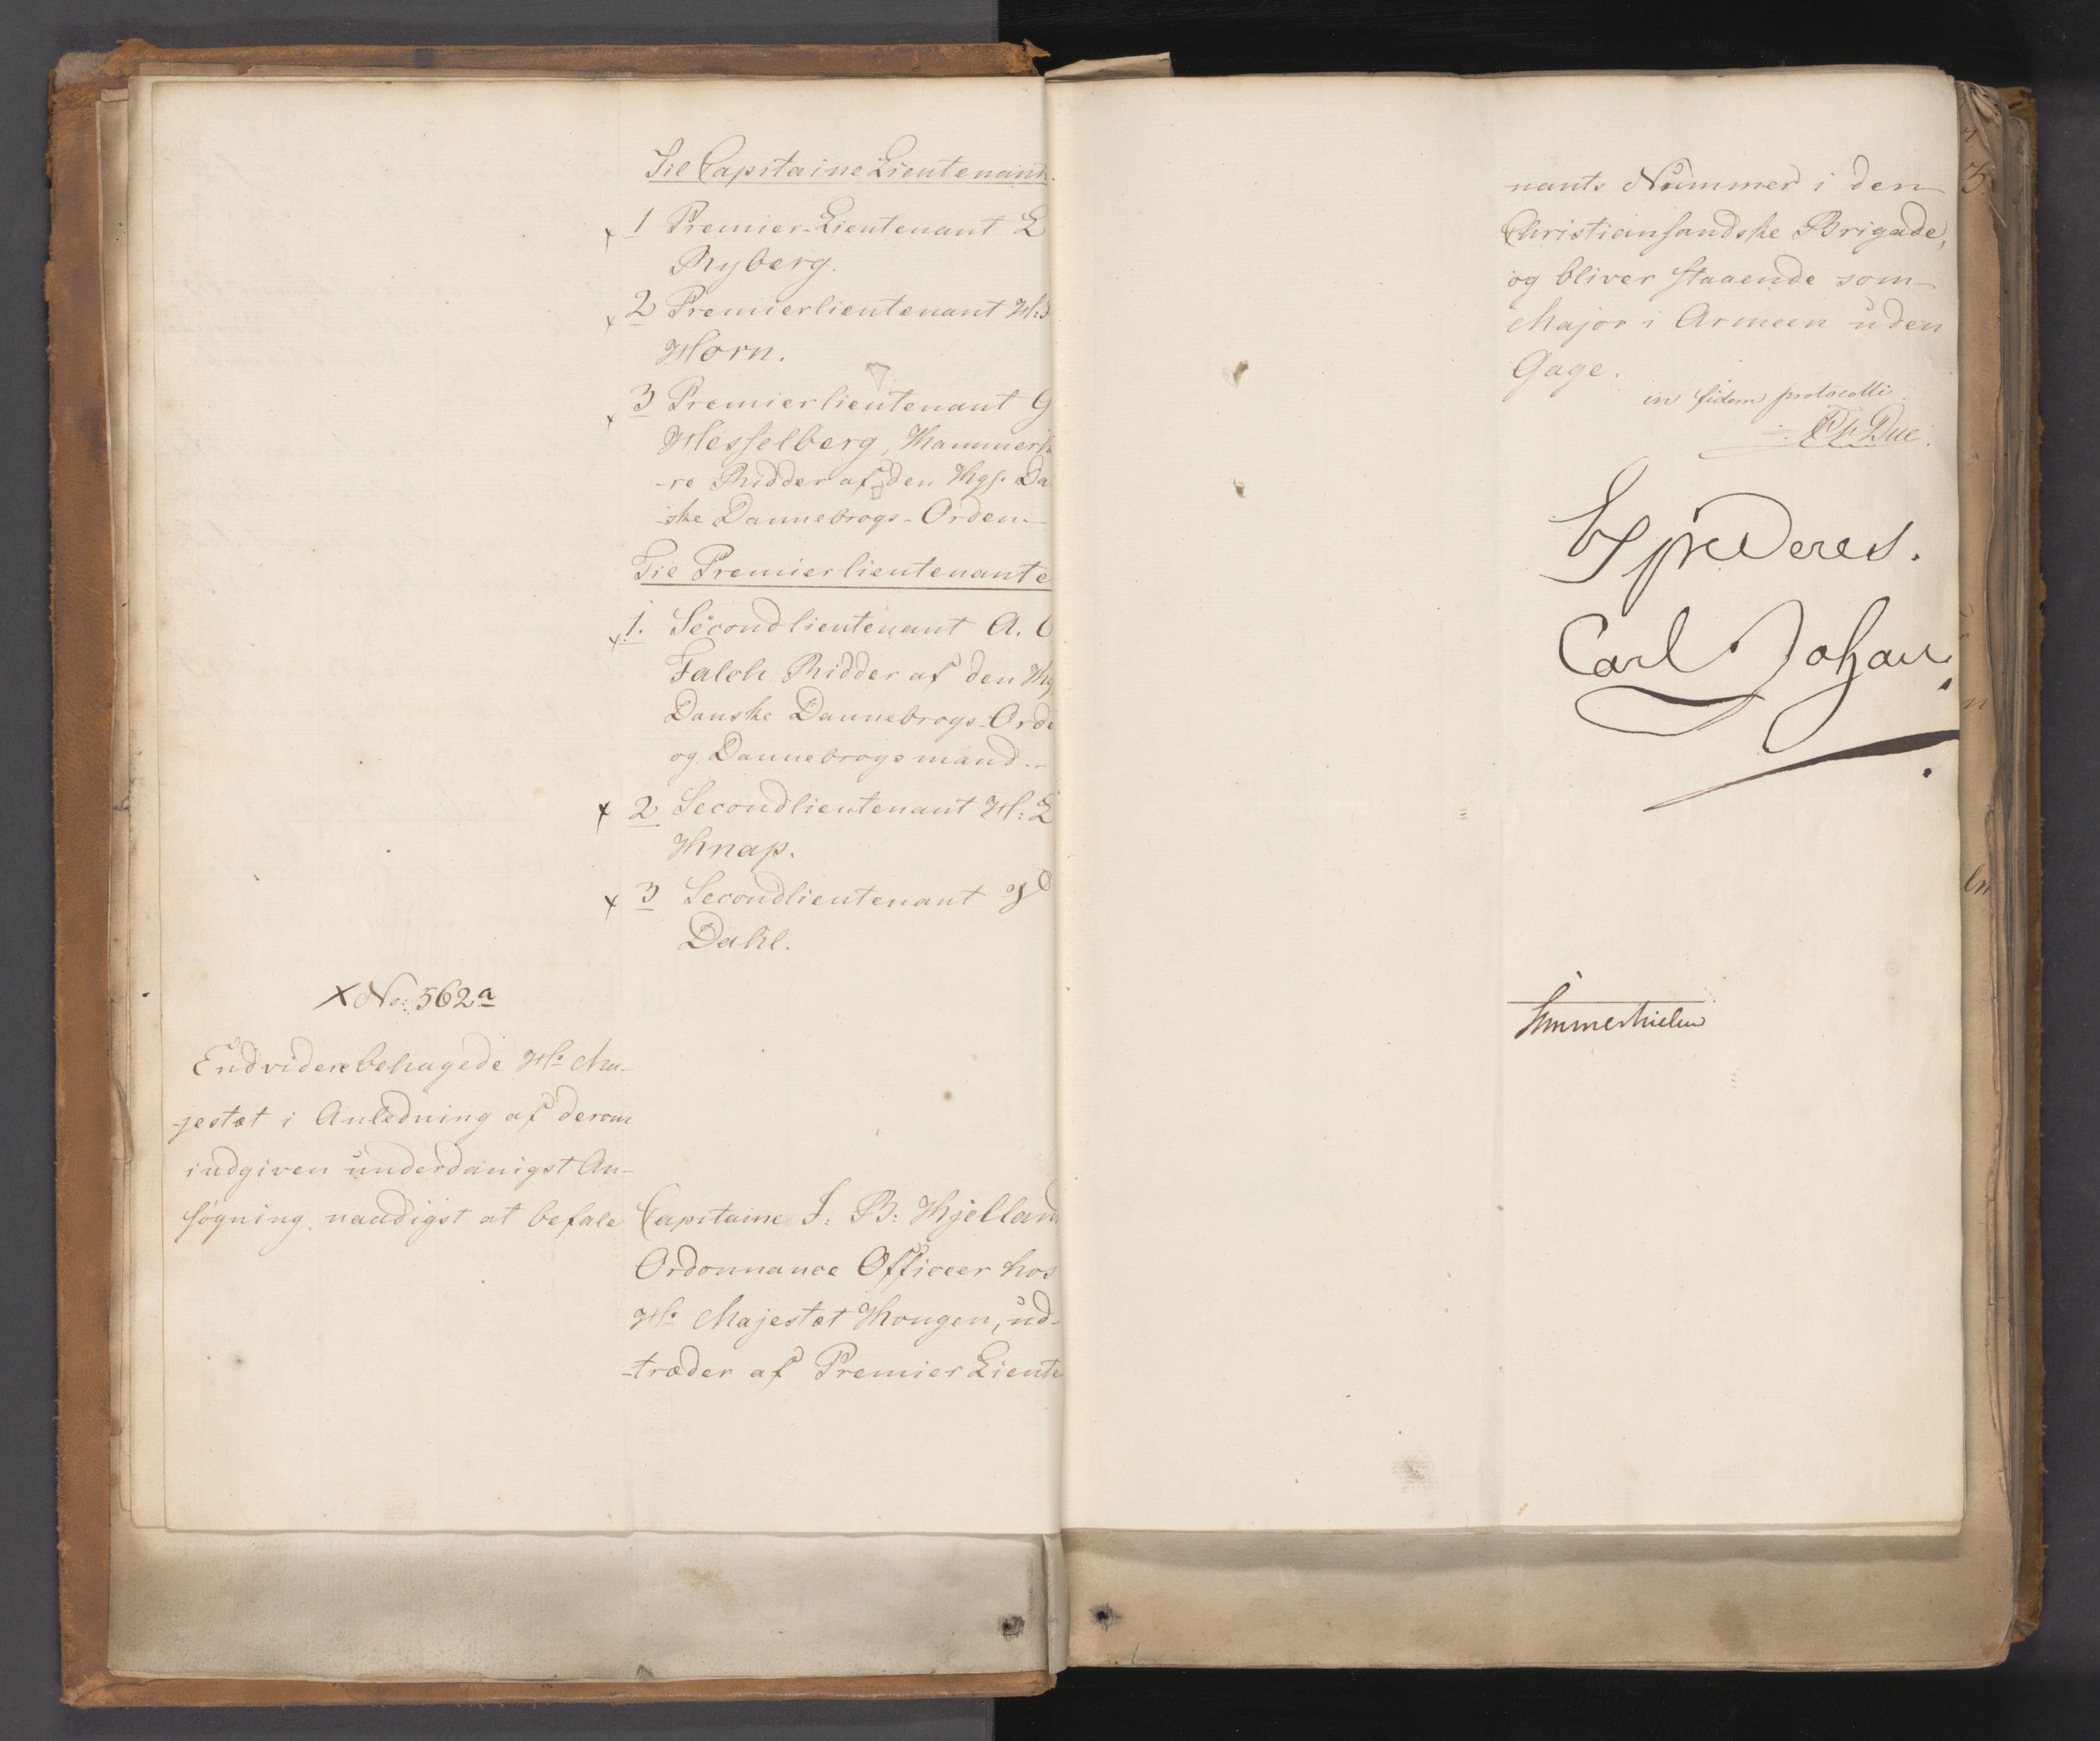 Til Capitaine Lieutenant
x 1 Premier-Lieutenant L
Ryberg.
x 2 Premierlieutenant H:
Horn.
x 3 Premierlieutenant G
Hesselberg, Kammerh
-re Ridder af den Kgs. Da
-ske Dannebrogs-Orden.
Til Premierlieutenante
x 1. Secondlieutenant A. O
Falch Ridder af den Kg
Danske Dannebrogs-Orde
og Dannebrogsmand.-
x 2 Secondlieutenant H: L
Knap.
x 3 Secondlieutenant
Dahl.
X No: 562a
Endvidere behagede Hs Ma-
-jestæt i Anledning af derom
indgiven underdanigst An-
søgning naadigst at befale
Capitaine J: B: Kjelland
Ordonnance Officeer hos
Hs Majestæt Kongen, ud-
-træder af Premier Lieute
nants Nummer i den
Christiansandske Brigade,
og bliver staaende som
Major i Armeen uden
Gage.
in fidem protocolli
Due.
Expederes.
Carl Johan